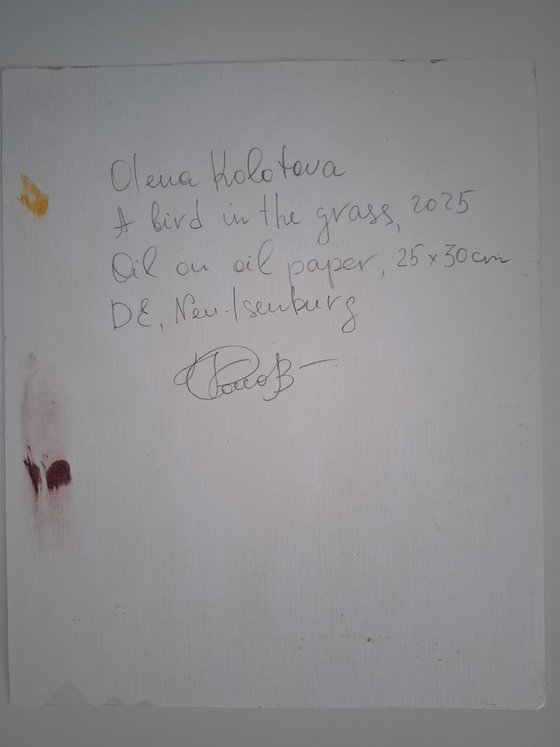 Olena Kolotova
A bird in the grass, 2025
Oil on oil paper, 25 x 30 cm
DE, Neu-Isenburg